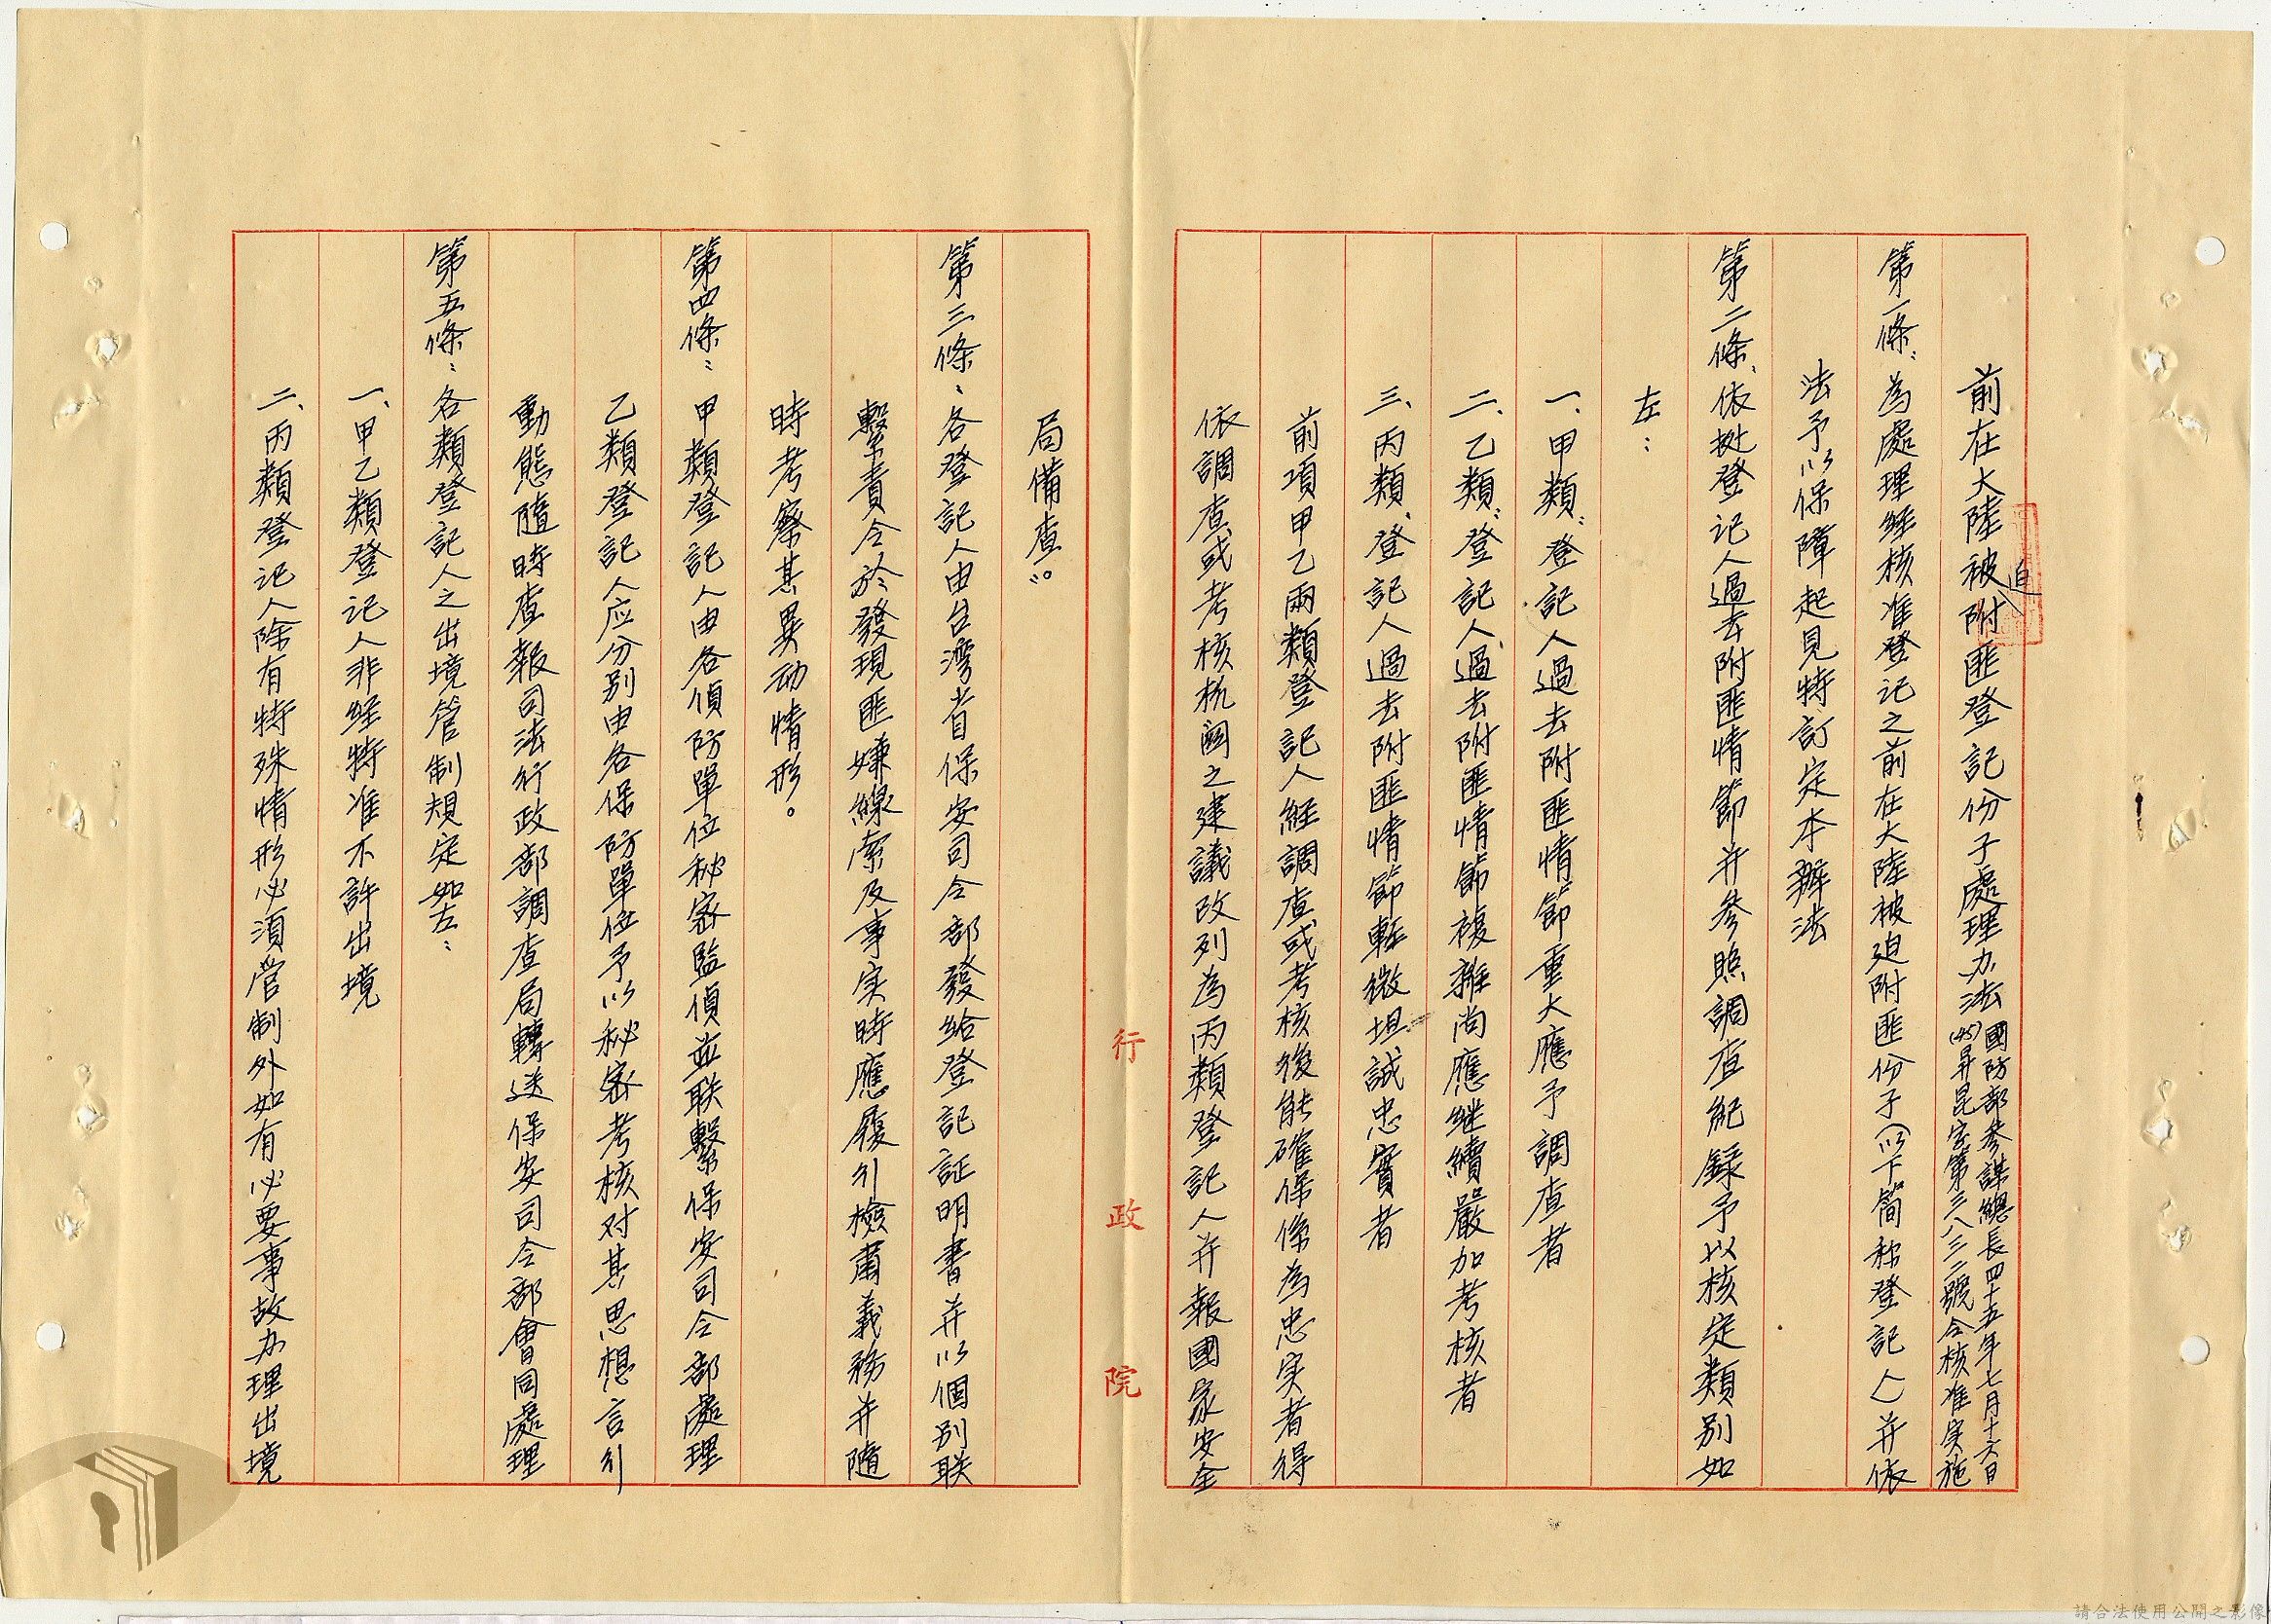 前在大陸被迫附匪登記份子處理办法
國防部參謀總長四十五年七月十六日
(45)昇昆字第三八三二號令核准実施
第一條：為處理経核准登记之前在大陸被迫附匪份子(以下簡称登記人)并依
法予以保障起見特訂定本辦法
第二條、依据登记人過去附匪情節并參照調查紀錄予以核定類別如
左：
一、甲類：登記人過去附匪情節重大應予調查者
二、乙類：登記人過去附匪情節複雜尚應继續嚴加考核者
三、丙類、登記人過去附匪情節輕微坦誠忠實者
前項甲乙兩類登記人経調查或考核後能確保係為忠実者得
依調查或考核机関之建議改列為丙類登記人并報國家安全
局備查。
第三條：各登記人由台湾省保安司令部發給登記証明書并以個別联
繫責令於發現匪嫌線索及事実時應履行檢肅義務并隨
時考察其異动情形。
第四條：甲類登記人由各偵防單位秘密監偵並联繫保安司令部處理
乙類登記人应分別由各保防單位予以秘密考核对其思想言行
動態隨時查報司法行政部調查局轉送保安司令部會同處理
第五條：各類登記人之出境管制規定如左：
一、甲乙類登记人非経特准不許出境
二、丙類登记人除有特殊情形必須管制外如有必要事故办理出境
行政院
請合法使用公開之影像